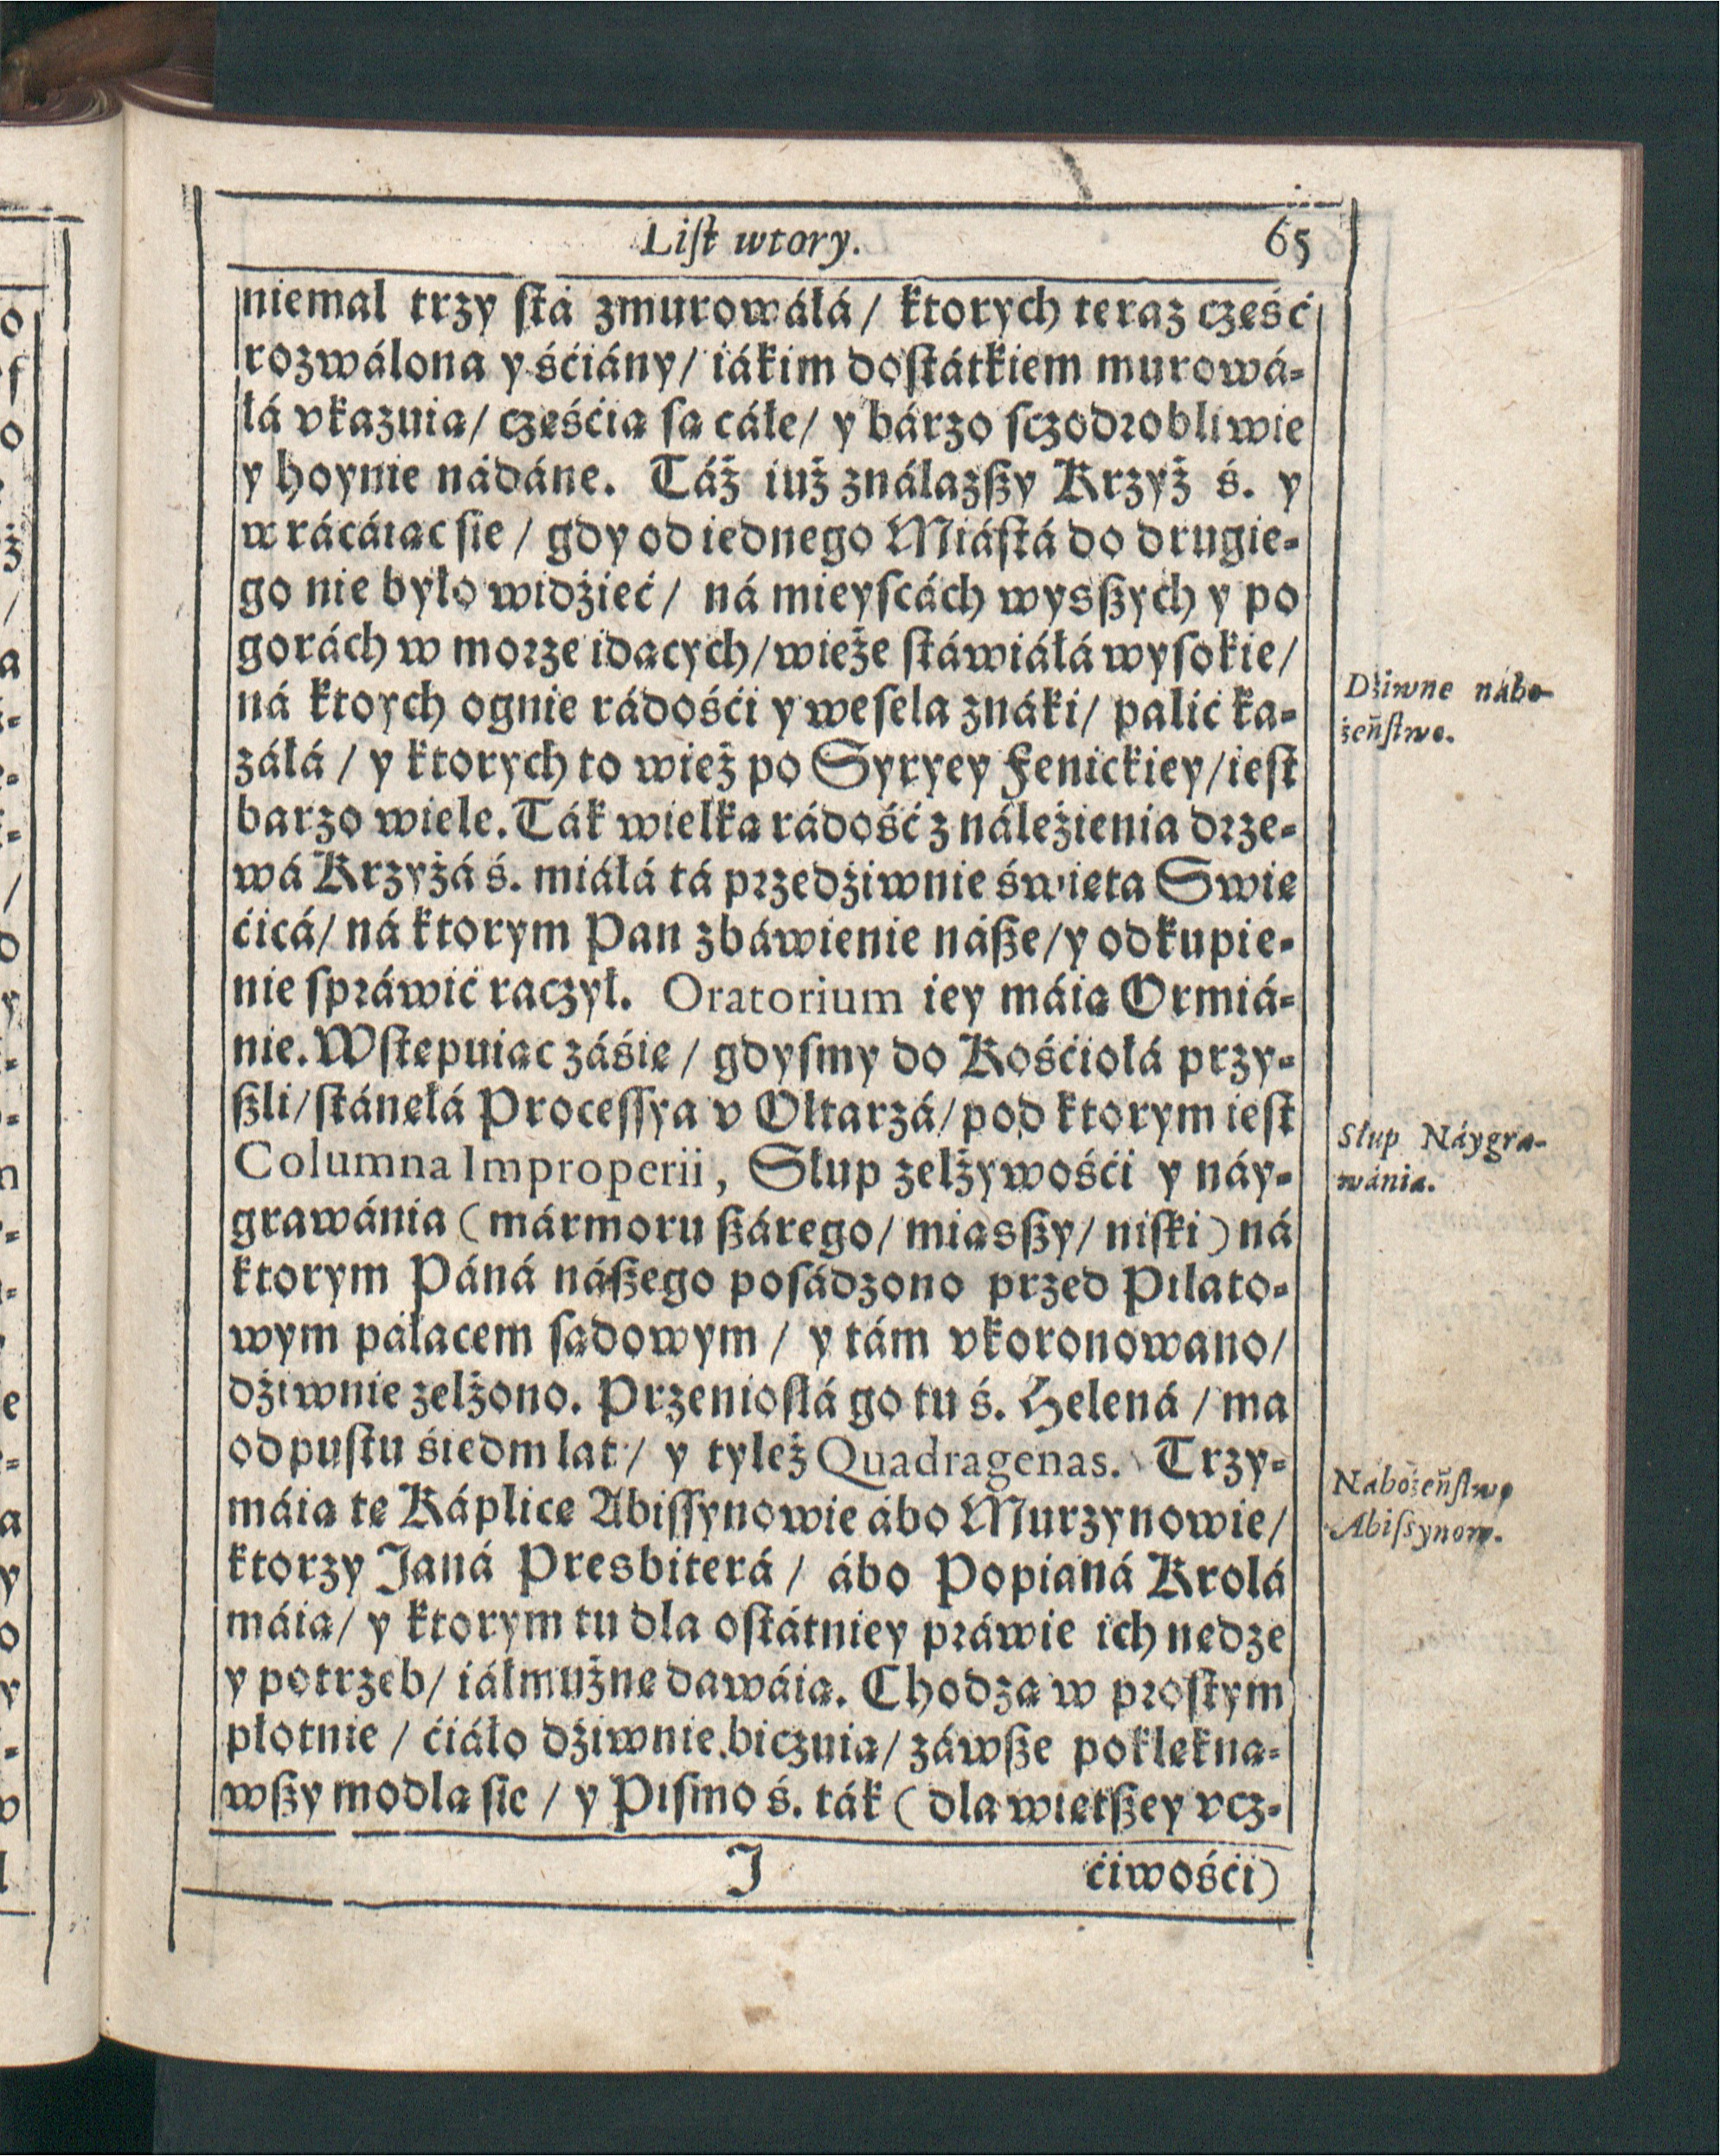 Liſt wtory. 65
niemal trzy ſtá zmurowáłá / ktorych teraz część
rozwálona y śćiány / iákim doſtátkiem murowá-
łá vkazuią / częśćią ſą cáłe / y bárzo ſczodrobliwie
y hoynie nádáne. Táż iuż ználazßy Krzyż ś. y
wrácáiąc ſie / gdy od iednego Miáſtá do drugie-
go nie było widźieć / ná mieyſcách wysßych y po
gorách w morze idących / wieże ſtáwiáłá wyſokie /
ná ktoych ognie rádośći y weſela znáki / palić ka-
záłá / y ktorych to wież po Syryey Fenickiey / ieſt
barzo wiele. Ták wielką rádość z náleźienia drze-
wá Krzyżá ś. miáłá tá przedźiwnie święta Swię
ćicá / ná ktorym Pan zbáwienie náße / y odkupie-
nie ſpráwić raczył. Oratorium iey máią Ormiá-
nie. Wſtępuiąc záśię / gdyſmy do Kośćiołá przy-
ßli / ſtánęłá Proceſſya v Ołtarzá / pod ktorym ieſt
Columna Improperii, Słup zelżywośći y náy-
grawánia (mármoru ßárego / miąsßy / niſki) ná
ktorym Páná náßego poſádzono przed Piłato-
wym páłacem ſądowym / y tám vkoronowano /
dźiwnie zelżono. Przenioſłá go tu ś. Helená / ma
odpuſtu śiedm lat / y tyleż Quadragenas. Trzy-
máią tę Káplicę Abiſſynowie ábo Murzynowie /
ktorzy Janá Presbiterá / ábo Popianá Krolá
máią / y ktorym tu dla oſtátniey práwie ich nędze
y potrzeb / iáłmużnę dawáią. Chodzą w proſtym
płotnie / ćiáło dźiwnie biczuią / záwße poklękną-
wßy modlą ſię / y Piſmo ś. ták (dla więtßey vcz-
J ćiwośći)
Dźiwne nabo-
żeñſtwo.
Słup Náygra-
wánia.
Nabożeñſtwo
Abiſsynow.